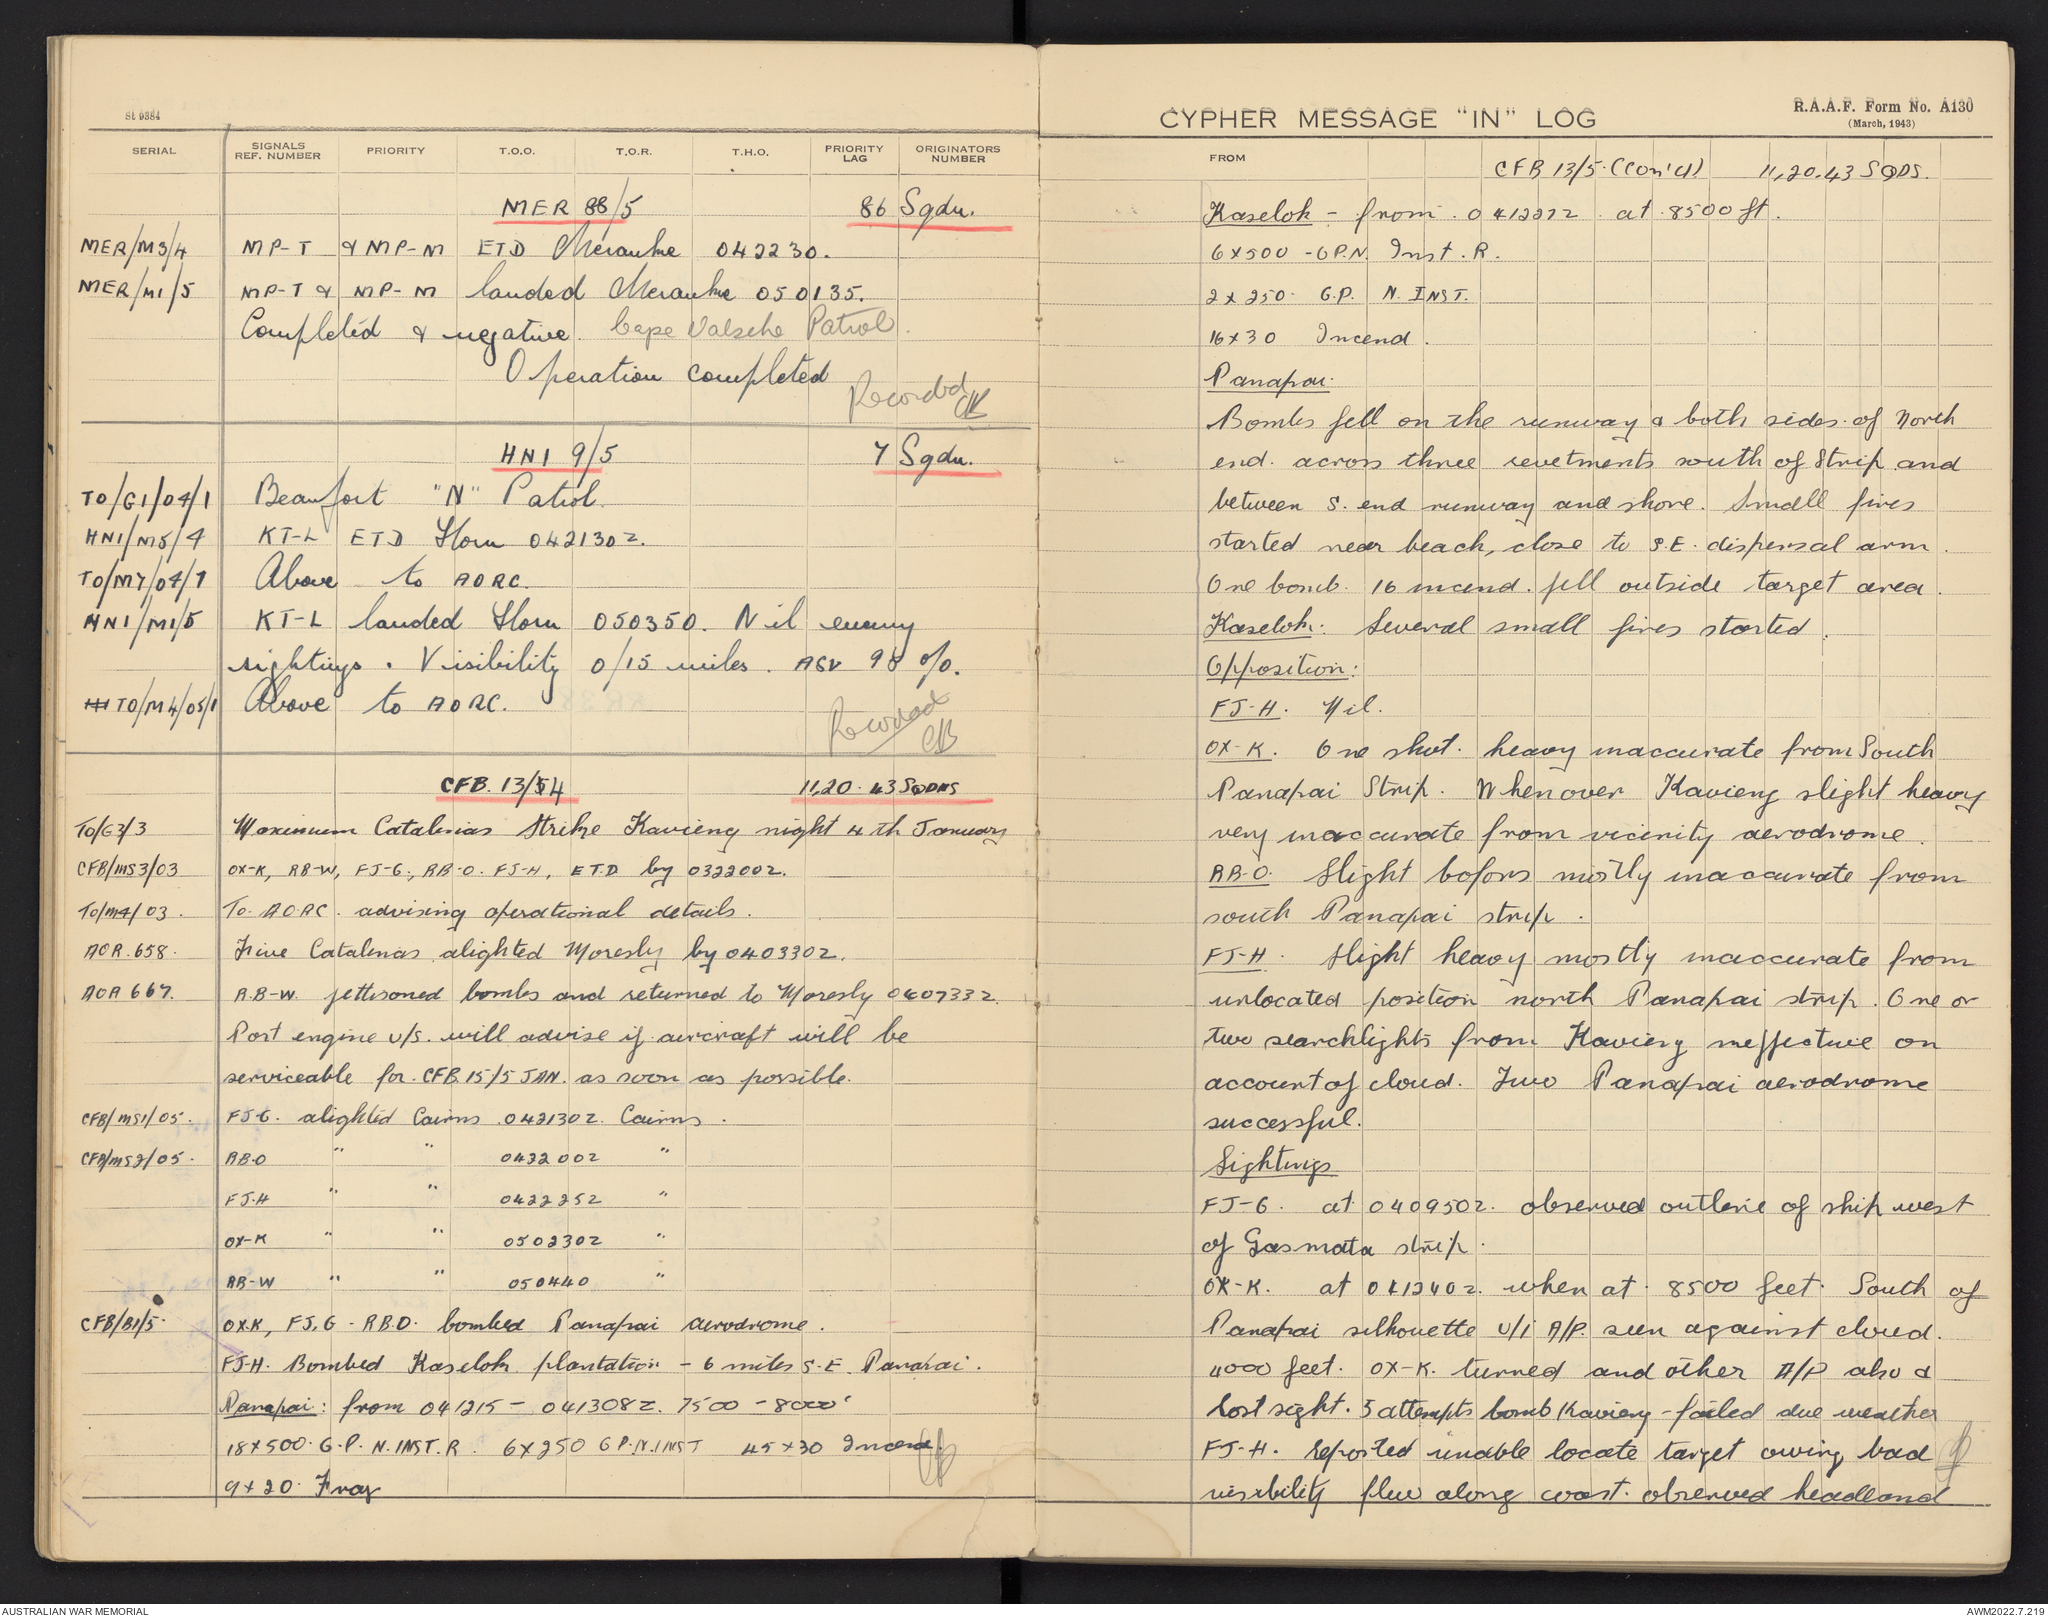 St 9384
SERIAL SIGNALS REF. NUMBER PRIORITY T.O.O. T.O.R. T.H.O. PRIORITY LAG ORIGINATORS NUMBER
MER 88/5 86 Sqdn.
MER/M3/4 MP-T & MP-M ETD Merauke 042230.
MER/M1/5 MP-T & MP-M landed Merauke 050135.
Completed & negative. Cape Valsche Patrol.
Operation completed
Recorded
HN1 9/5 7 Sqdn.
TO/G1/04/1 Beaufort "N" Patrol.
HN1/M5/4 KT-L ETD Horn 042130Z.
TO/M7/04/1 Above to AORC.
HN1/M1/5 KT-L landed Horn 050350. Nil enemy
sightings. Visibility 0/15 miles. ASV 98 %.
TO/M4/05/1 Above to AORC.
Recorded
CFB. 13/4 11,20.43 SQDNS
TO/G3/3 Maximum Catalinas Strike Kavieng night 4th January
CFB/MS3/03 OX-K, RB-W, FJ-G., RB-O. FJ-H, ETD by 032200Z.
TO/M4/03. To AORC. advising operational details.
AOR.658. Five Catalinas alighted Moresby by 040330Z.
AOR 667. R.B-W. jettisoned bombs and returned to Moresby 040733Z.
Port engine U/S. will advise if aircraft will be
serviceable for CFB.15/5 JAN. as soon as possible.
CFB/MS1/05. FJ-G. alighted Cairns 042130Z. Cairns.
CFB/MS2/05. RB-O " " 042200Z "
FJ-H " " 042225Z "
OX-K " " 050230Z "
RB-W " " 050440 "
CFB/B1/5. OX.K, FJ.G - R.B.O. bombed Panapai aerodrome.
FJ-H. Bombed Kaselok plantation - 6 miles S.E. Panapai.
Panapai: from 041215 - 041308Z. 7500 - 8000'
18x500. G.P. N.INST. R. 6x250 G.P.N.INST 45x30 Incend
9x20. Frag
R.A.A.F. Form No. A130
(March, 1943)
CYPHER MESSAGE "IN" LOG
FROM
CFB 13/5. (Con'd) 11,20.43 SQDS.
Kaselok - from 041222Z at 8500 ft.
6x500 - G.P.N. Inst. R.
2x250. G.P. N. INST.
16x30 Incend.
Panapai.
Bombs fell on the runway & both sides of North
end. across three revetments south of Strip and
between S. end runway and shore. Small fires
started near beach, close to S.E. dispersal arm.
One bomb. 16 incend. fell outside target area.
Kaselok: Several small fires started.
Opposition:
FJ-H. Nil.
OX-K. One shot. heavy inaccurate from South
Panapai Strip. When over Kavieng slight heavy
very inaccurate from vicinity aerodrome.
R.B-O. Slight bofors mostly inaccurate from
south Panapai strip.
FJ-H. Slight heavy mostly inaccurate from
unlocated position north Panapai strip. One or
two searchlights from Kavieng ineffective on
account of cloud. Two Panapai aerodrome
successful.
Sightings
FJ-G. at 040950Z. observed outline of ship west
of Gasmata strip.
OX-K. at 041240Z. when at 8500 feet. South of
Panapai silhouette U/I A/P. seen against cloud.
4000 feet. OX-K. turned and other A/P also &
lost sight. 3 attempts bomb Kavieng - failed due weather
FJ-H. reported unable locate target owing bad
visibility flew along coast. observed headland
AUSTRALIAN WAR MEMORIAL
AWM2022.7.219